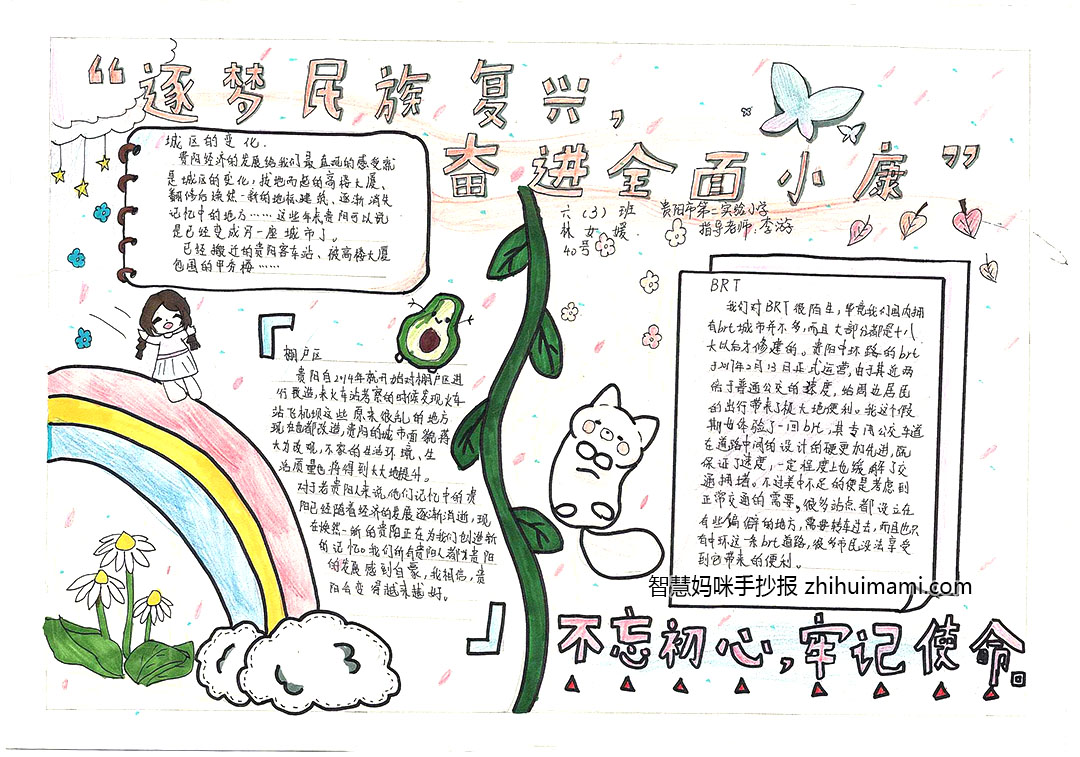 “逐梦民族复兴,
奋进全面小康”
六（3）班
林女媛
40号
贵阳市第二实验小学
指导老师.李游
城区的变化.
贵阳经济的发展给我们最直观的感受就
是城区的变化,拔地而起的高楼大厦、
翻修后焕然一新的地标建筑、逐渐消失
记忆中的地方……这些年来贵阳可以说
是已经变成另一座城市了。
已经搬迁的贵阳客车站、被高楼大厦
包围的甲秀楼……
棚户区
贵阳自2014年就开始对棚户区进
行改造,来火车站考察的时候发现火车
站飞机坝这些原来很乱的地方
现在也都改造,贵阳的城市面貌将
大力改观,不家的生活环境、生
活质量也将得到大大地提升。
对于老贵阳人来说,他们记忆中的贵
阳已经随着经济的发展逐渐消逝,现
在焕然一新的贵阳正在为我们创造新
的记忆。我们所有贵阳人都为贵阳
的发展感到自豪,我相信,贵
阳会变得越来越好。
BRT
我们对BRT很陌生,毕竟我们国内拥
有brt城市并不多,而且大部分都是十八
大以后才修建的。贵阳中环路的brt
于2017年2月13日正式运营,由于其近两
倍于普通公交的速度,给周边居民
的出行带来了极大地便利。我这个假
期也体验了一回brt,其专用公交车道
在道路中间的设计的确更加先进,既
保证了速度,一定程度上也缓解了交
通拥堵。不过美中不足的便是考虑到
正常交通的需要,很多站点都设立在
有些偏僻的地方,需要转车过去,而且也只
有中环这一条brt道路,很多市民没法享受
到它带来的便利。
智慧妈咪手抄报 zhihuimami.com
不忘初心,牢记使命。